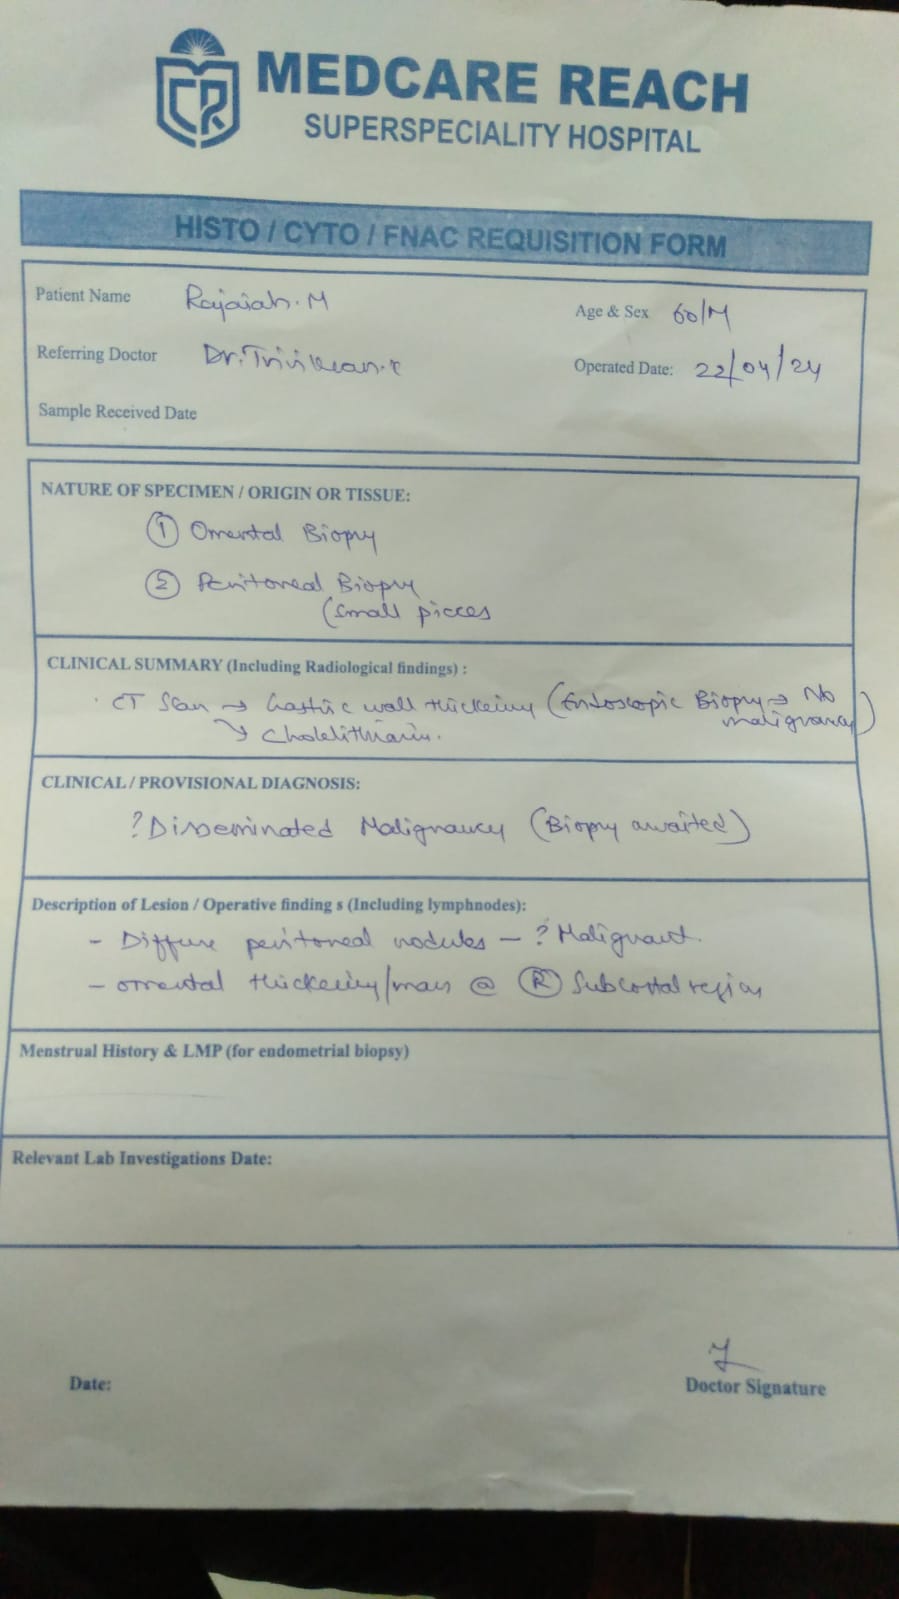 MEDCARE REACH
SUPERSPECIALITY HOSPITAL
HISTO / CYTO / FNAC REQUISITION FORM
Patient Name Rajaiah. M Age & Sex 60/M
Referring Doctor Dr. Operated Date: 22/04/24
Sample Received Date
NATURE OF SPECIMEN / ORIGIN OR TISSUE:
① Omental Biopsy
② Peritoneal Biopsy
(Small pieces
CLINICAL SUMMARY (Including Radiological findings) :
CT Scan → Gastric wall thickening (Endoscopic Biopsy → No
malignancy)
↘ Cholelithiasis.
CLINICAL / PROVISIONAL DIAGNOSIS:
? Disseminated Malignancy (Biopsy awaited)
Description of Lesion / Operative finding s (Including lymphnodes):
- Diffuse peritoneal nodules - ? Malignant.
- omental thickening/mass @ Ⓡ Subcostal region
Menstrual History & LMP (for endometrial biopsy)
Relevant Lab Investigations Date:
Date: Doctor Signature